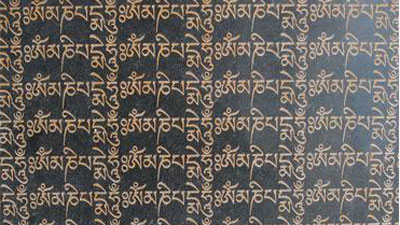 དྨེ་ཧཱུྃ་ཨོཾ་མ་ཎི་པ་དྨེ་ཧཱུྃ་ཨོཾ་མ་ཎི་པ་དྨེ་ཧཱུྃ་ཨོཾ་མ་ཎི་པ་དྨེ་ཧཱུྃ་ཨོཾ་མ་ཎི་པ
དྨེ་ཧཱུྃ་ཨོཾ་མ་ཎི་པ་དྨེ་ཧཱུྃ་ཨོཾ་མ་ཎི་པ་དྨེ་ཧཱུྃ་ཨོཾ་མ་ཎི་པ་དྨེ་ཧཱུྃ་ཨོཾ་མ་ཎི་པ
དྨེ་ཧཱུྃ་ཨོཾ་མ་ཎི་པ་དྨེ་ཧཱུྃ་ཨོཾ་མ་ཎི་པ་དྨེ་ཧཱུྃ་ཨོཾ་མ་ཎི་པ་དྨེ་ཧཱུྃ་ཨོཾ་མ་ཎི་པ
དྨེ་ཧཱུྃ་ཨོཾ་མ་ཎི་པ་དྨེ་ཧཱུྃ་ཨོཾ་མ་ཎི་པ་དྨེ་ཧཱུྃ་ཨོཾ་མ་ཎི་པ་དྨེ་ཧཱུྃ་ཨོཾ་མ་ཎི་པ
དྨེ་ཧཱུྃ་ཨོཾ་མ་ཎི་པ་དྨེ་ཧཱུྃ་ཨོཾ་མ་ཎི་པ་དྨེ་ཧཱུྃ་ཨོཾ་མ་ཎི་པ་དྨེ་ཧཱུྃ་ཨོཾ་མ་ཎི་པ
དྨེ་ཧཱུྃ་ཨོཾ་མ་ཎི་པ་དྨེ་ཧཱུྃ་ཨོཾ་མ་ཎི་པ་དྨེ་ཧཱུྃ་ཨོཾ་མ་ཎི་པ་དྨེ་ཧཱུྃ་ཨོཾ་མ་ཎི་པ
དྨེ་ཧཱུྃ་ཨོཾ་མ་ཎི་པ་དྨེ་ཧཱུྃ་ཨོཾ་མ་ཎི་པ་དྨེ་ཧཱུྃ་ཨོཾ་མ་ཎི་པ་དྨེ་ཧཱུྃ་ཨོཾ་མ་ཎི་པ